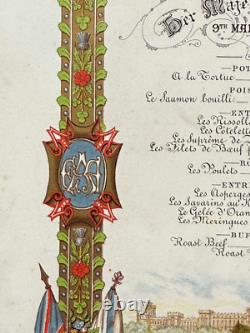 Her Maje
9TH MA
POT
A la Tortue
POIS
Le Saumon bouilli
ENT
Les Rissoll
Les Cotelet
Les Suprême de
Les Filets de Bœuf
R
Les Poulets
ENTRE
Les Asperges
Les Savarins au K
La Gelée d'Oran
Les Meringues
BUF
Roast Beef
Roast